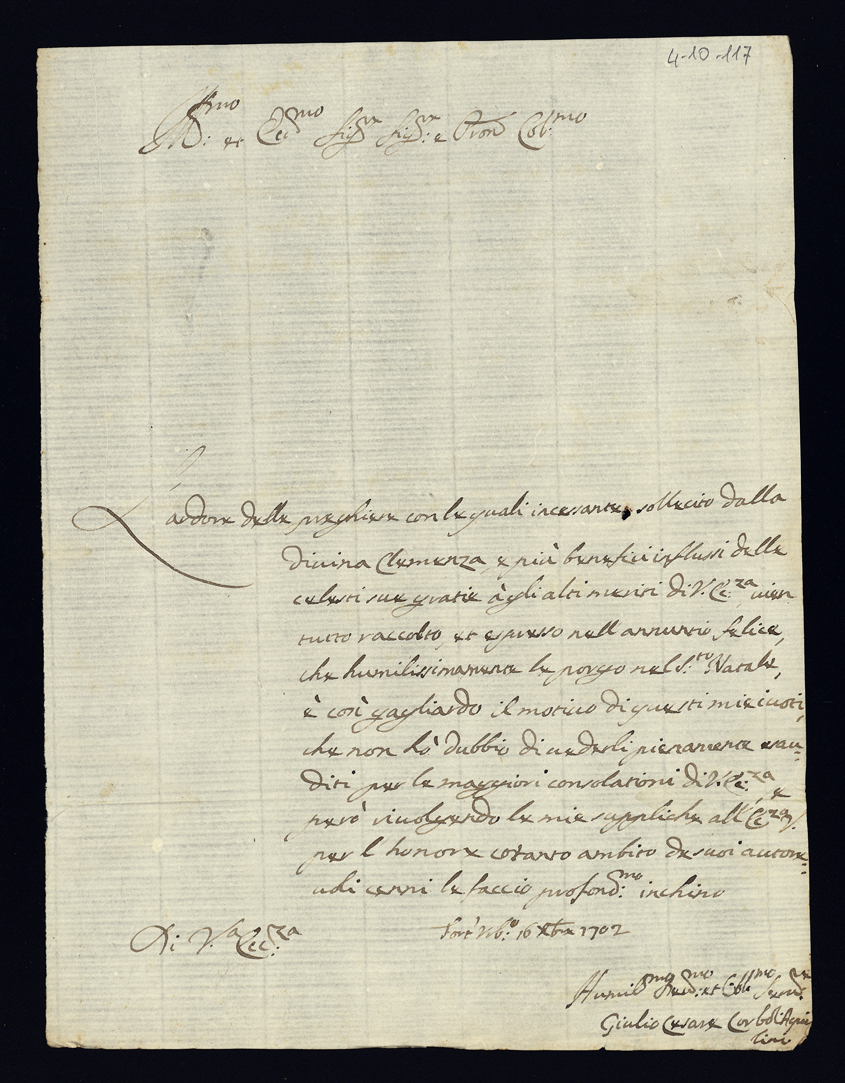 4-10-117
Ill:mo et Ecc:mo Sig:re Sig:re e Pron Col:mo
L'ardore delle preghiere con le quali incessante sollecito dalla
divina Clemenza, e più benefici influssi delle
celesti sue gratie à gli alti meriti di V. Ecc:za, vien
tutto raccolto, et espresso nell'annuntio felice,
che humilissimamente le porgo nel S.to Natale,
è così gagliardo il motivo di questi miei voti,
che non hò dubbio di vederli pienamente esau=
diti per le maggiori consolationi di V. Ecc:za, e
però rivolgendo le mie suppliche all'Ecc:za V.
per l'honore cotanto ambito de suoi autore=
voli cenni le faccio profond:mo inchino
Di V.a Ecc:za
16 Xbre 1702
Humil:mo Dev:mo et Obl:mo Serv:re
Giulio Cesare Corboli Aquil
lini